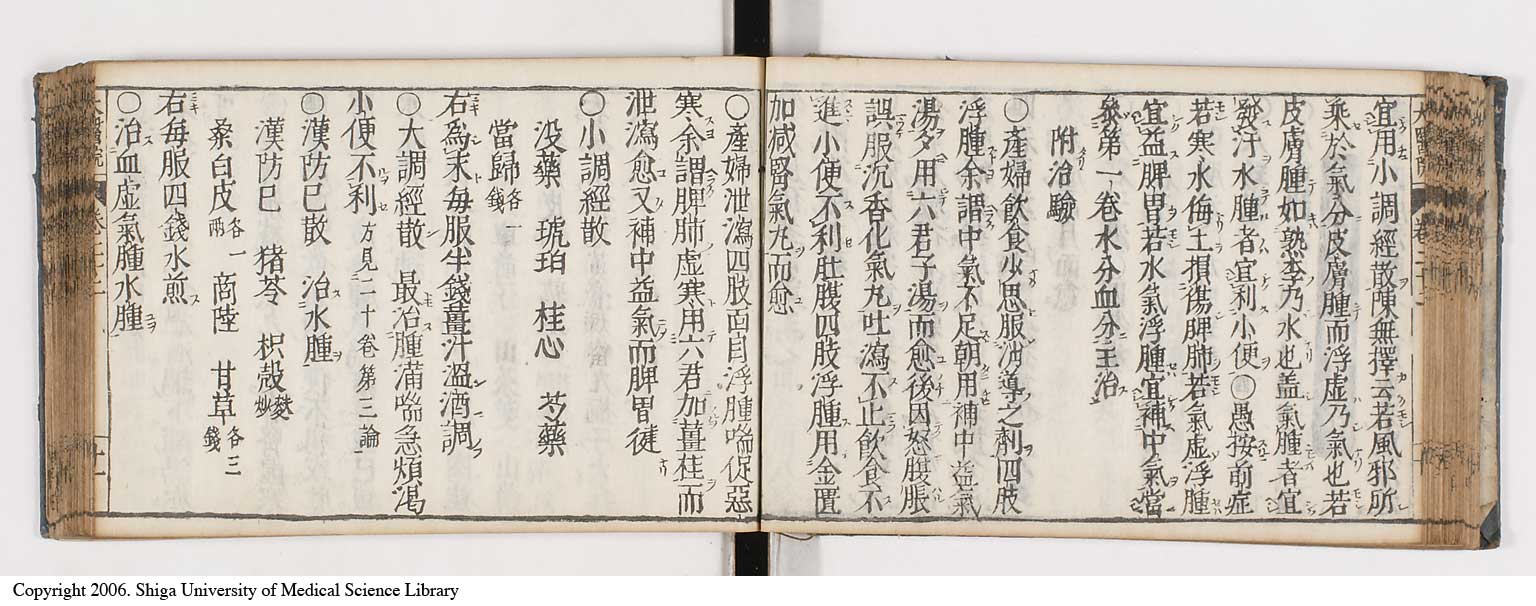 宜用小調經散陳無擇云若風邪所
乘於氣分皮膚腫而浮虚乃氣也若
皮膚腫如熟李乃水也蓋氣腫者宜
發汗水腫者宜利小便○愚按前症
若寒水侮土損傷脾肺若氣虚浮腫
宜益脾胃若水氣浮腫宜補中氣當
叅第一卷水分血分主治
附治驗
○産婦飲食少思服沙導之劑四肢
浮腫余謂中氣不足朝用補中益氣
湯夕用六君子湯而愈後因怒腹脹
誤服沉香化氣丸吐瀉不止飲食不
進小便不利肚腹四肢浮腫用金匱
加減腎氣丸而愈
○産婦泄瀉四肢面目浮腫喘促惡
寒余謂脾肺虚寒用六君加薑桂而
泄瀉愈又補中益氣而脾胃徤
○小調經散
没藥 琥珀 桂心 芍藥
當歸各一錢
右為末毎服半錢薑汁溫酒調
○大調經散 最治腫滿喘急煩渴
小便不利方見二十卷第三論
○漢防巳散 治水腫
漢防巳 猪苓 枳殻麩炒
桑白皮各一兩 商陸 甘草各三錢
右毎服四錢水煎
○治血虚氣腫水腫
Copyright 2006. Shiga University of Medical Science Library